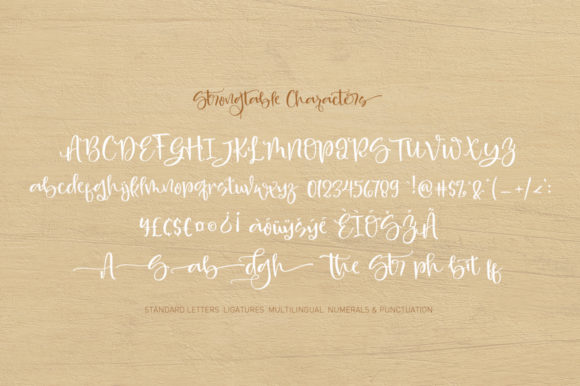 Strongtable Characters
ABCDEFGHIJKLMNOPQRSTUVWXYZ
abcdefghijklmnopqrstuvwxyz 0123456789 "!@#$%&*(_-+/<':
¥£€$¢¤©¿¡ àöüÿšýé ÈÌÖŠŽÂ
A S ab dgh the Str ph bit ff
STANDARD LETTERS LIGATURES MULTILINGUAL NUMERALS & PUNCTUATION